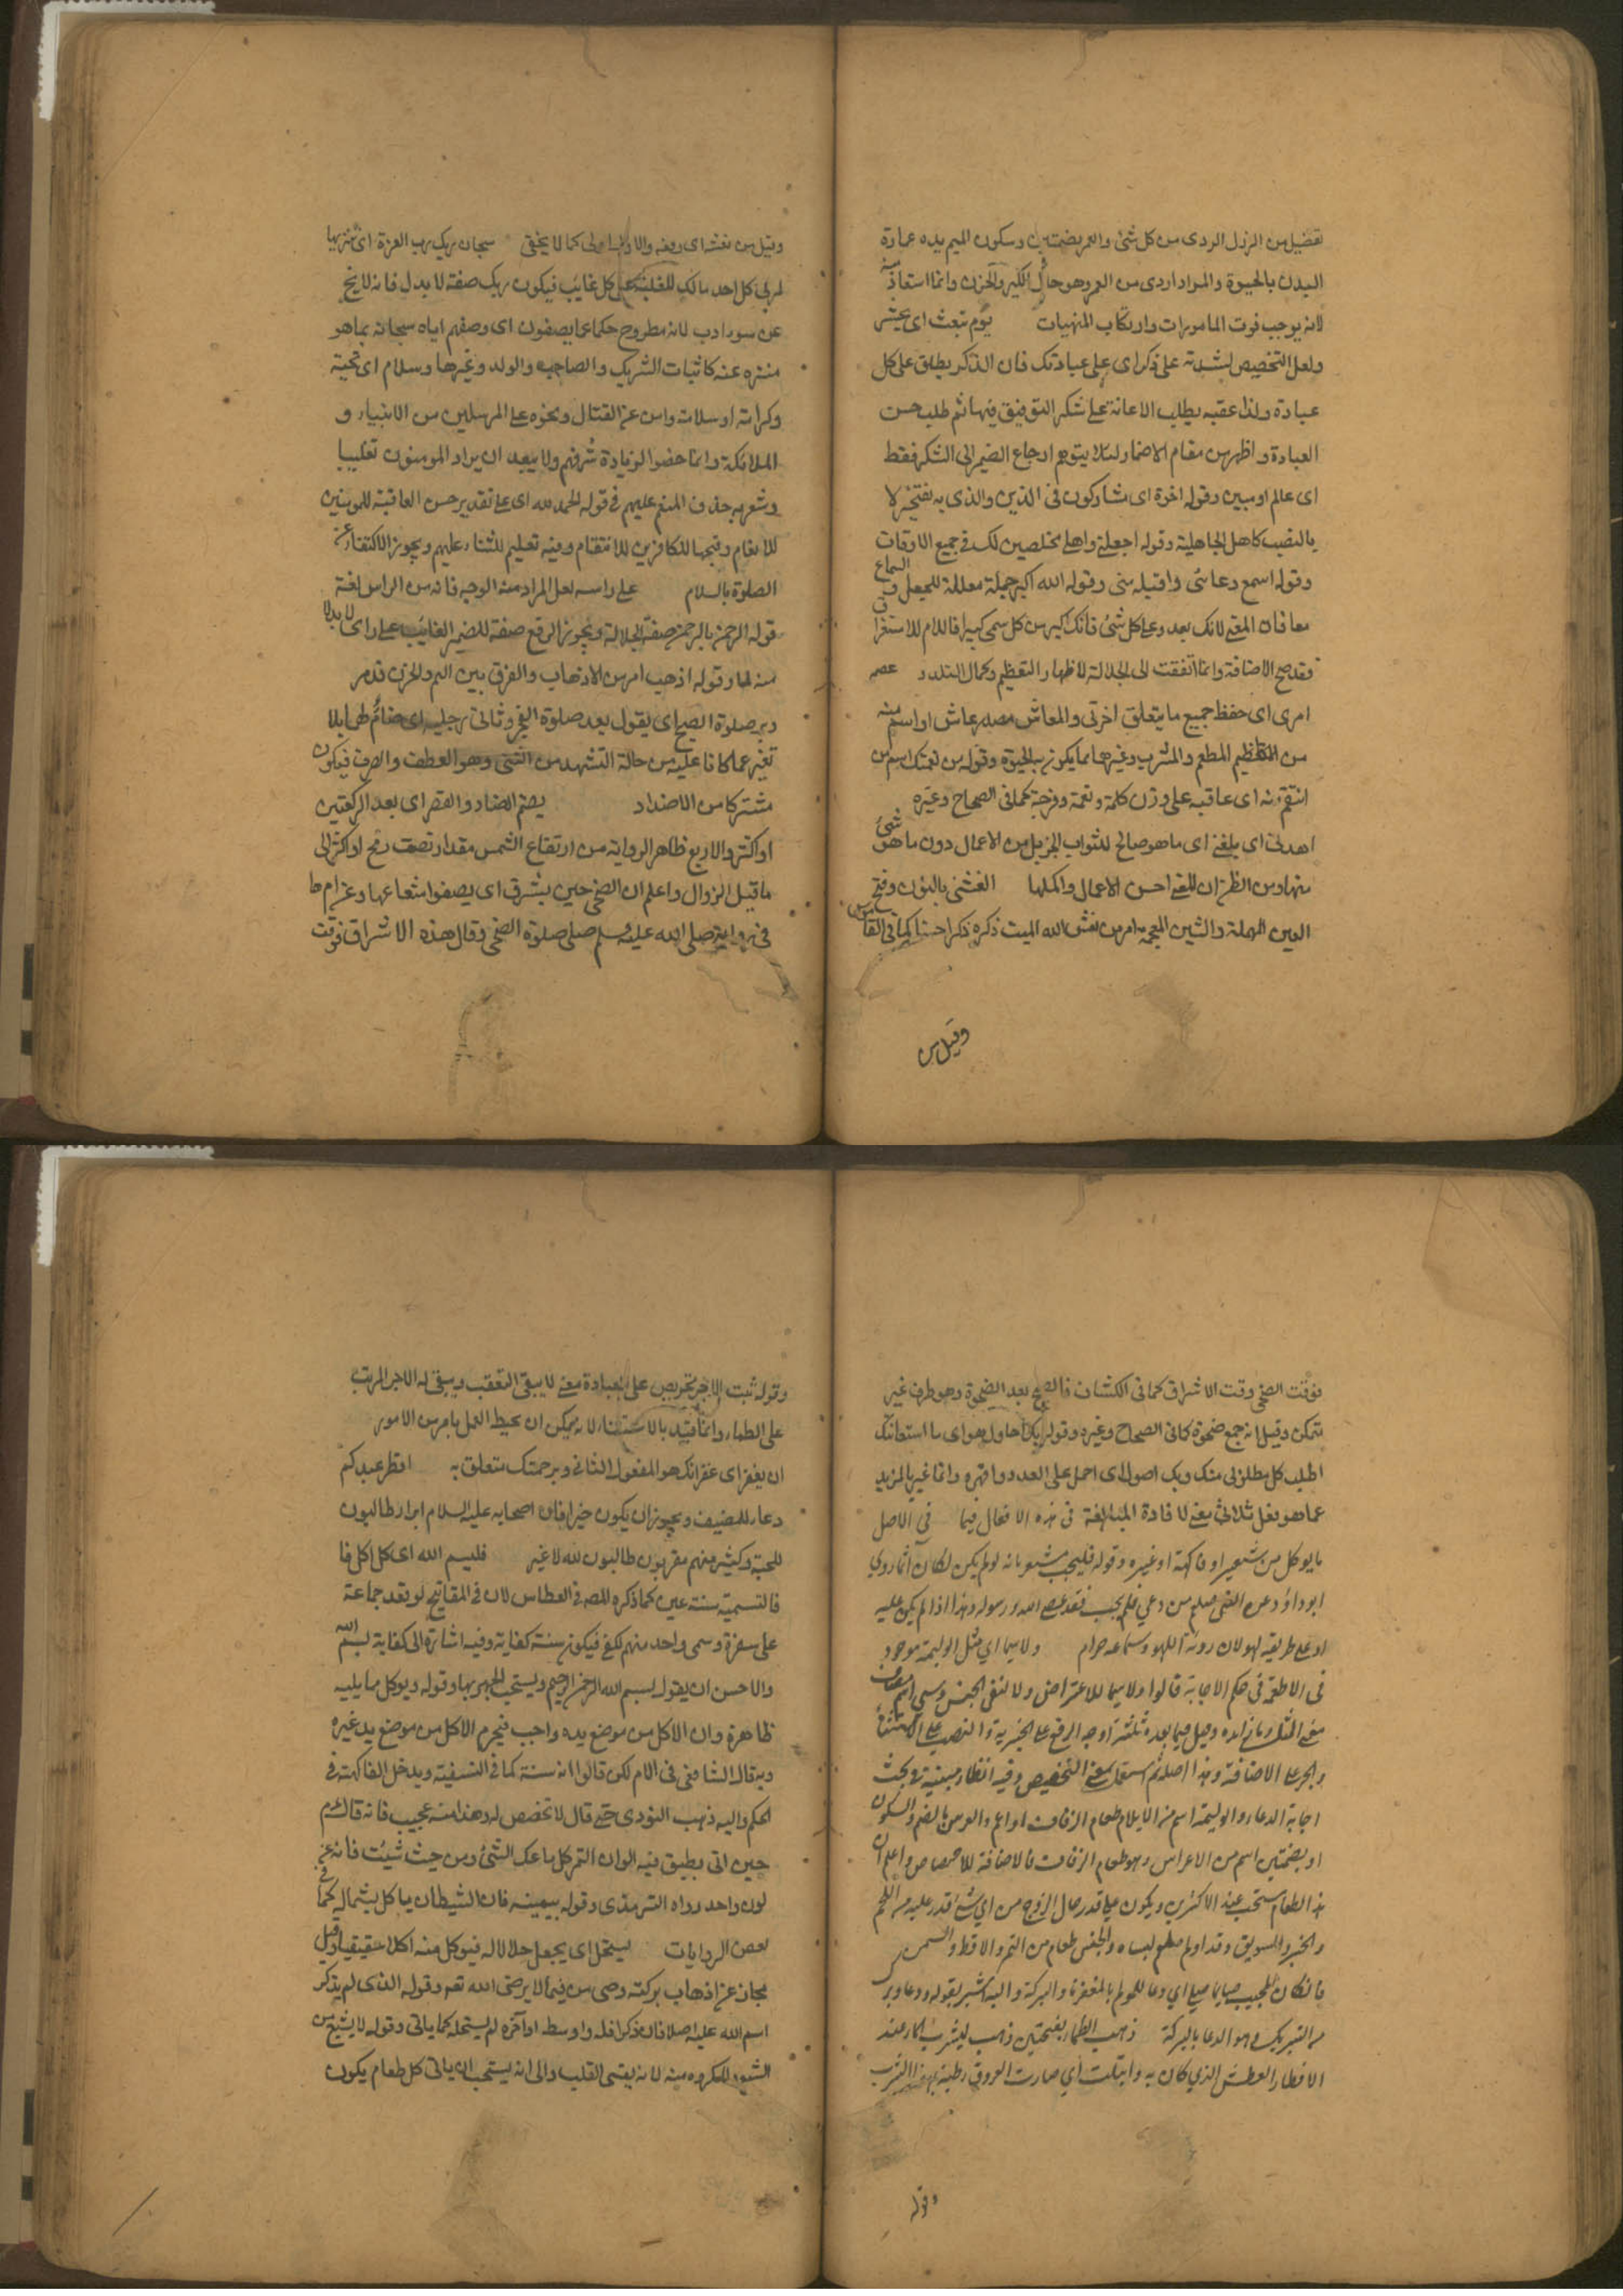 تفضيل من الرذل الردى من كل شئ والعمر بضمتين وسكون الميم يده عمارة
البدن بالحيوة والمراد اردى من العمر وهو حال الكبر والحزن وانما استعاذ منه
لانه يوجب فوت المامورات وارتكاب المنهيات يوم تبعث اى يحشر
ولعل التخصيص لشدته على ذكراى على عبادتك فان الذكر يطلق على كل
عبادة ولذا عقبه يطلب الاعانة على شكر التوفيق فيها ثم طلب حسن
العبادة واظهر من مقام الاضمار لئلا يتوهم ارجاع الضمير الى الشكر فقط
اى عالم او مبين وقوله اخوة اى مشاركون فى الدين والذى به يفتخر لا
بالنصب كاهل الجاهلية وقوله اجعلنى واهلى مخلصين لك فى جميع الاوقات
وقوله اسمع دعائى واقبله منى وقوله الله اكبر جملة معللة للجعل و السماع
معا فان المعنى لانك بعد وعلى كل شئ فانك اكبر من كل سمى كبيرا فاللام للاستغراق
فقد صح الاضافة وانما اتفقت الى الجلالة لاظهار التعظيم وكمال التلذذ عصمه
امرى اى حفظ جميع ما يتعلق اخرتى والمعاش مصدر عاش او اسم منه
من المطعم والمشرب وغيرهما مما يكون به الحيوة وقوله من نعمتك اسم من
انتقم منه اى عاقبه على وزن كلمة ونعمة وفرجة كما فى الصحاح وغيره
اهدنى اى بلغنى اى ما هو صالح لثواب الجزيل من الاعمال دون ما هو شئ
منها ومن الظن ان المعنى احسن الاعمال واكملها انعشنى بالنون وفتح
العين المهملة والشين المعجمة امر من نعش الله الميت ذكره ذكرا حسنا كما فى القاموس
وقيل من
وقيل من نعشه اى رفعه والاول اولى كما لا يخفى سبحان ربك رب العزة اى تنزيها
لربى كل احد مالك للغلبة على كل غايب فيكون ربك صفة لا بدل فانه لا يخ
عن سوء ادب لانه مطروح حكما عما يصفون اى وصفهم اياه سبحانه بما هو
منزه عنه كاثبات الشريك والصاحبه والولد وغيرها وسلام اى تحية
وكرامة او سلامة وامن عن القتال ونحوه على المرسلين من الانبياء و
الملائكة وانما خصوا لزيادة شرفهم ولا يبعد ان يراد المومنون تغليبا
وشعر به حذف المنعم عليهم فى قوله الحمد لله اى على تقدير حسن العاقبة للمومنين
للانعام وقبحها للكافرين للانتقام وفيه تعليم للثناء عليهم ويجوز الاكتفاء عن
الصلوة بالسلام على راسه لعل المراد منه الوجه فانه من الراس لغة
قوله الرحمن بالرحمن صفة الجلالة ويجوز الرفع صفة للضمير الغايب على راى لا بدلا
منه لما وقوله اذهب امر من الاذهاب والفرق بين الهم والحزن قد مر
دبر صلوة الصبح اى يقول بعد صلوة الفجر وثانى رجليه اى ضام لهما بلا
تغير عما كانا عليه من حالة التشهد من الثنى وهو العطف والصرف فيكون
مشتركا من الاضداد بضم الضاد والقصر اى بعد الركعتين
او اكثر والاربع ظاهر الرواية من ارتفاع الشمس مقدار نصف رمح او اكثر الى
ما قبل الزوال واعلم ان الضحى حين يشرق اى يصفو اشعاعها وعن ام ها
فى رواية صلى الله عليه وسلم صلى صلوة الضحى وقال هذه الاشراق فوقت
فوقت الضحى وقت الاشراق كما فى الكشاف فالضحى بعد الضحوة وهو ظرف غير
متمكن وقيل انه جمع ضحوة كما فى الصحاح وغيره وقوله بك احاول هو اى ما استعانتك
اطلب كل مطلوبى منك وبك اصول اى احمل على العدو واقهره وانما غير بالمزيد
عما هو بفعل ثلاثى معنى لافادة المبالغة فى هذه الافعال فيما فى الاصل
ما يوكل من شعير او فاكهة او غيره وقوله فليجب مشعر بانه لو لم يكن لكان اثما روى
ابو داؤد عن النبى صلعم من دعى فلم يجب فقد عصى الله ورسوله وهذا اذا لم يكن عليه
او على طريقه لهو لان روية اللهو وسماعه حرام ولا سيما اى مثل الوليمة موجود
فى الاطعمة فى حكم الاجابة قالوا ولا سيما للاعتراض ولا لنفى الجنس وسى اسم مضاف
معنى المثل وما زائدة وحل فيما بعده ثلثة اوجه الرفع على الخبرية والنصب على الاستثناء
والجر على الاضافة وهذا اصله ثم استعمل بمعنى التخصيص وفيه انظار مبينة فى بحث
اجابة الدعاء والوليمة اسم من الايلام طعام الزفاف او اعم والعرس بالضم والسكون
او بضمتين اسم من الاعراس وهو طعام الزفاف فالاضافة للاختصاص واعلم ان
هذا الطعام مستحب عند الاكثرين ويكون على قدر حال الزوج من اى شئ قدر عليه من اللحم
والخبز والسويق وقد اولم صلعم لنساءه والجنس طعام من التمر والاقط والسمن
فانكان المجيب صايما صلى اى دعا للمولم بالمغفرة والبركة واليه اشير بقوله ودعا وبر
من التبريك وهو الدعا بالبركة ذهب الظما بفتحتين ذهب ليشرب الماء عند
الافطار العطش الذى كان به وابتلت اى صارت العروق رطبة بهذا الشرب
وقوله
وقوله ثبت الاجر تحريص على العبادة معنى لا يبقى التعقب ويبقى له الاجر المرتب
على الظماء وانما قيد بالاستثناء لانه يمكن ان يحيط العمل بامر من الامور
ان يغفر اى غفرانك هو المفعول الثانى وبرحمتك متعلق به افطر عبدكم
دعاء للمضيف ويجوز ان يكون خبرا فان اصحابه عليه السلام ابرار طالبون
للجنة وكثير منهم مقربون طالبون لله لا غير فليسم الله اى كل اكل فا
فالتسمية سنة عين كما ذكره المص فى العطاس لان فى المفاتيح لو قعد جماعة
على سفرة وسمى واحد منهم لكفى فيكون سنة كفاية وفيه اشارة الى كفاية بسم الله
والاحسن ان يقول بسم الله الرحمن الرحيم ويستحب الجهر بها وقوله ويوكل مما يليه
ظاهره وان الاكل من موضع يده واجب فيحرم الاكل من موضع يد غيره
وبه قال الشافعى فى الام لكن قالوا انه سنة كما فى النسفية ويدخل الفاكهة فى
الحكم واليه ذهب النووى حتى قال لا تخصص له وهذا منه عجيب فانه قال كرم
حين اتى بطبق فيه الوان التمر كل ما عكـ الشئ ومن حيث شئت فانه غير
لون واحد رواه الترمذى وقوله بيمينه فان الشيطان ياكل بشماله كما فى
بعض الروايات ليستحل اى يجعل حلالا له فيوكل منه اكلا حقيقيا وقيل
مجاز عن اذهاب بركته وصى من فيما لا يرضى الله تعم وقوله الذى لم يذكر
اسم الله عليه اصلا فان ذكر اوله او اوسطه او آخره لم يستحله كما ياتى وقوله لا يشبع من
الشبع المكروه منه لانه يقسى القلب والى انه يستحب ان ياتى كل طعام يكون